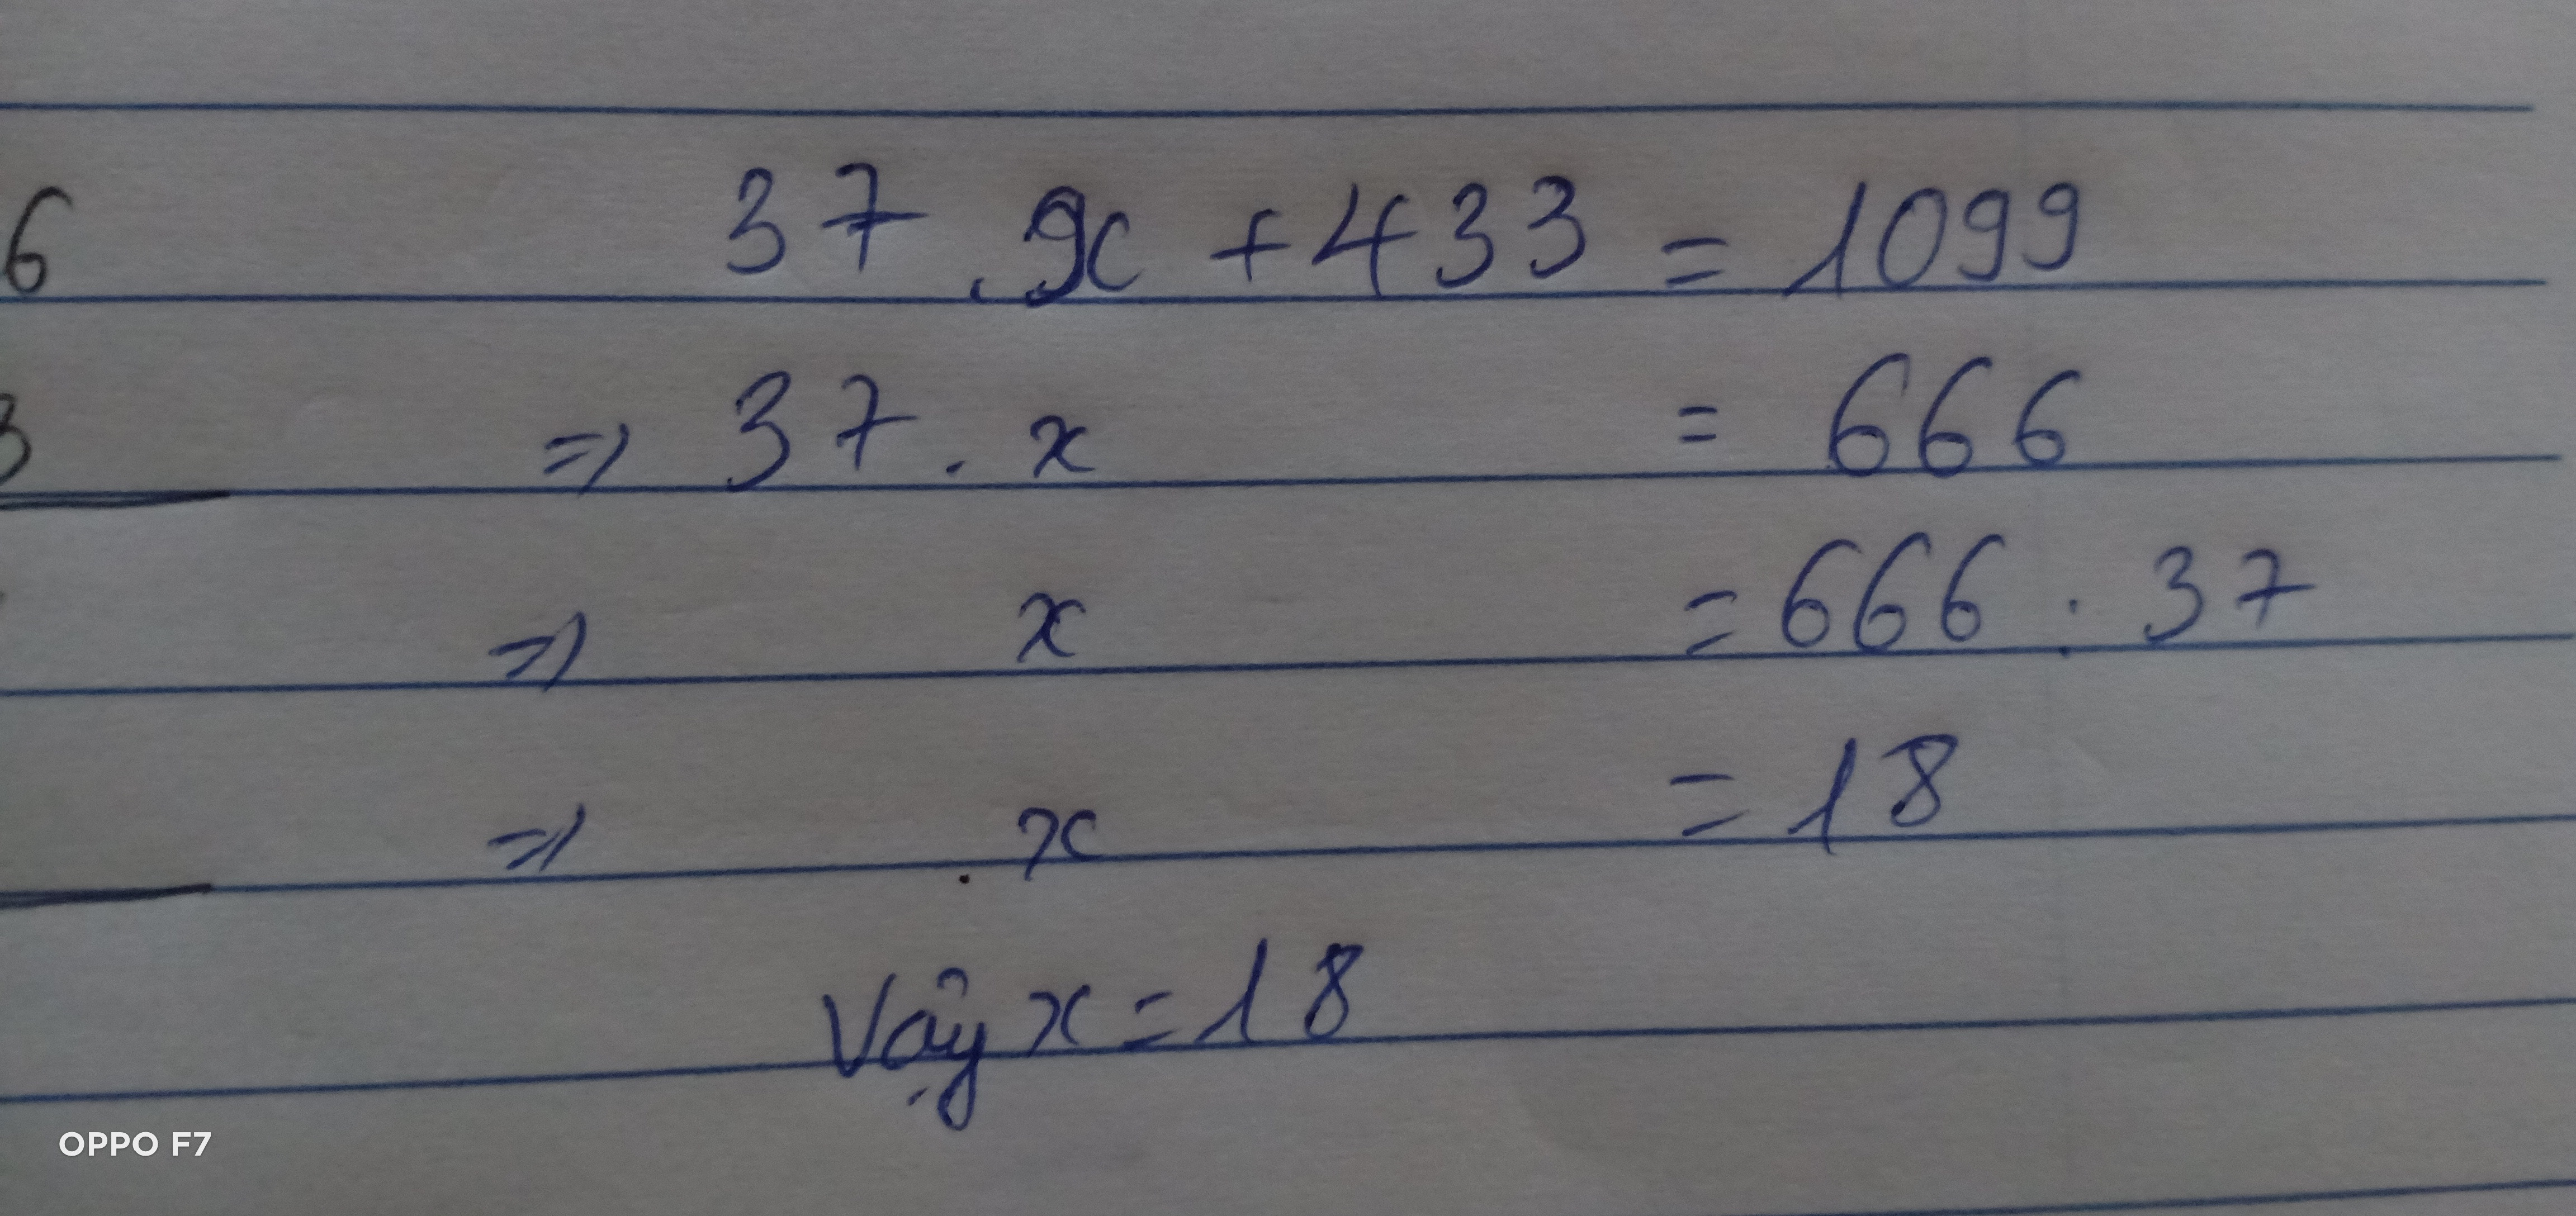 6 37 . x + 433 = 1099
3 => 37 . x = 666
=> x = 666 : 37
=> x = 18
Vậy x = 18
OPPO F7